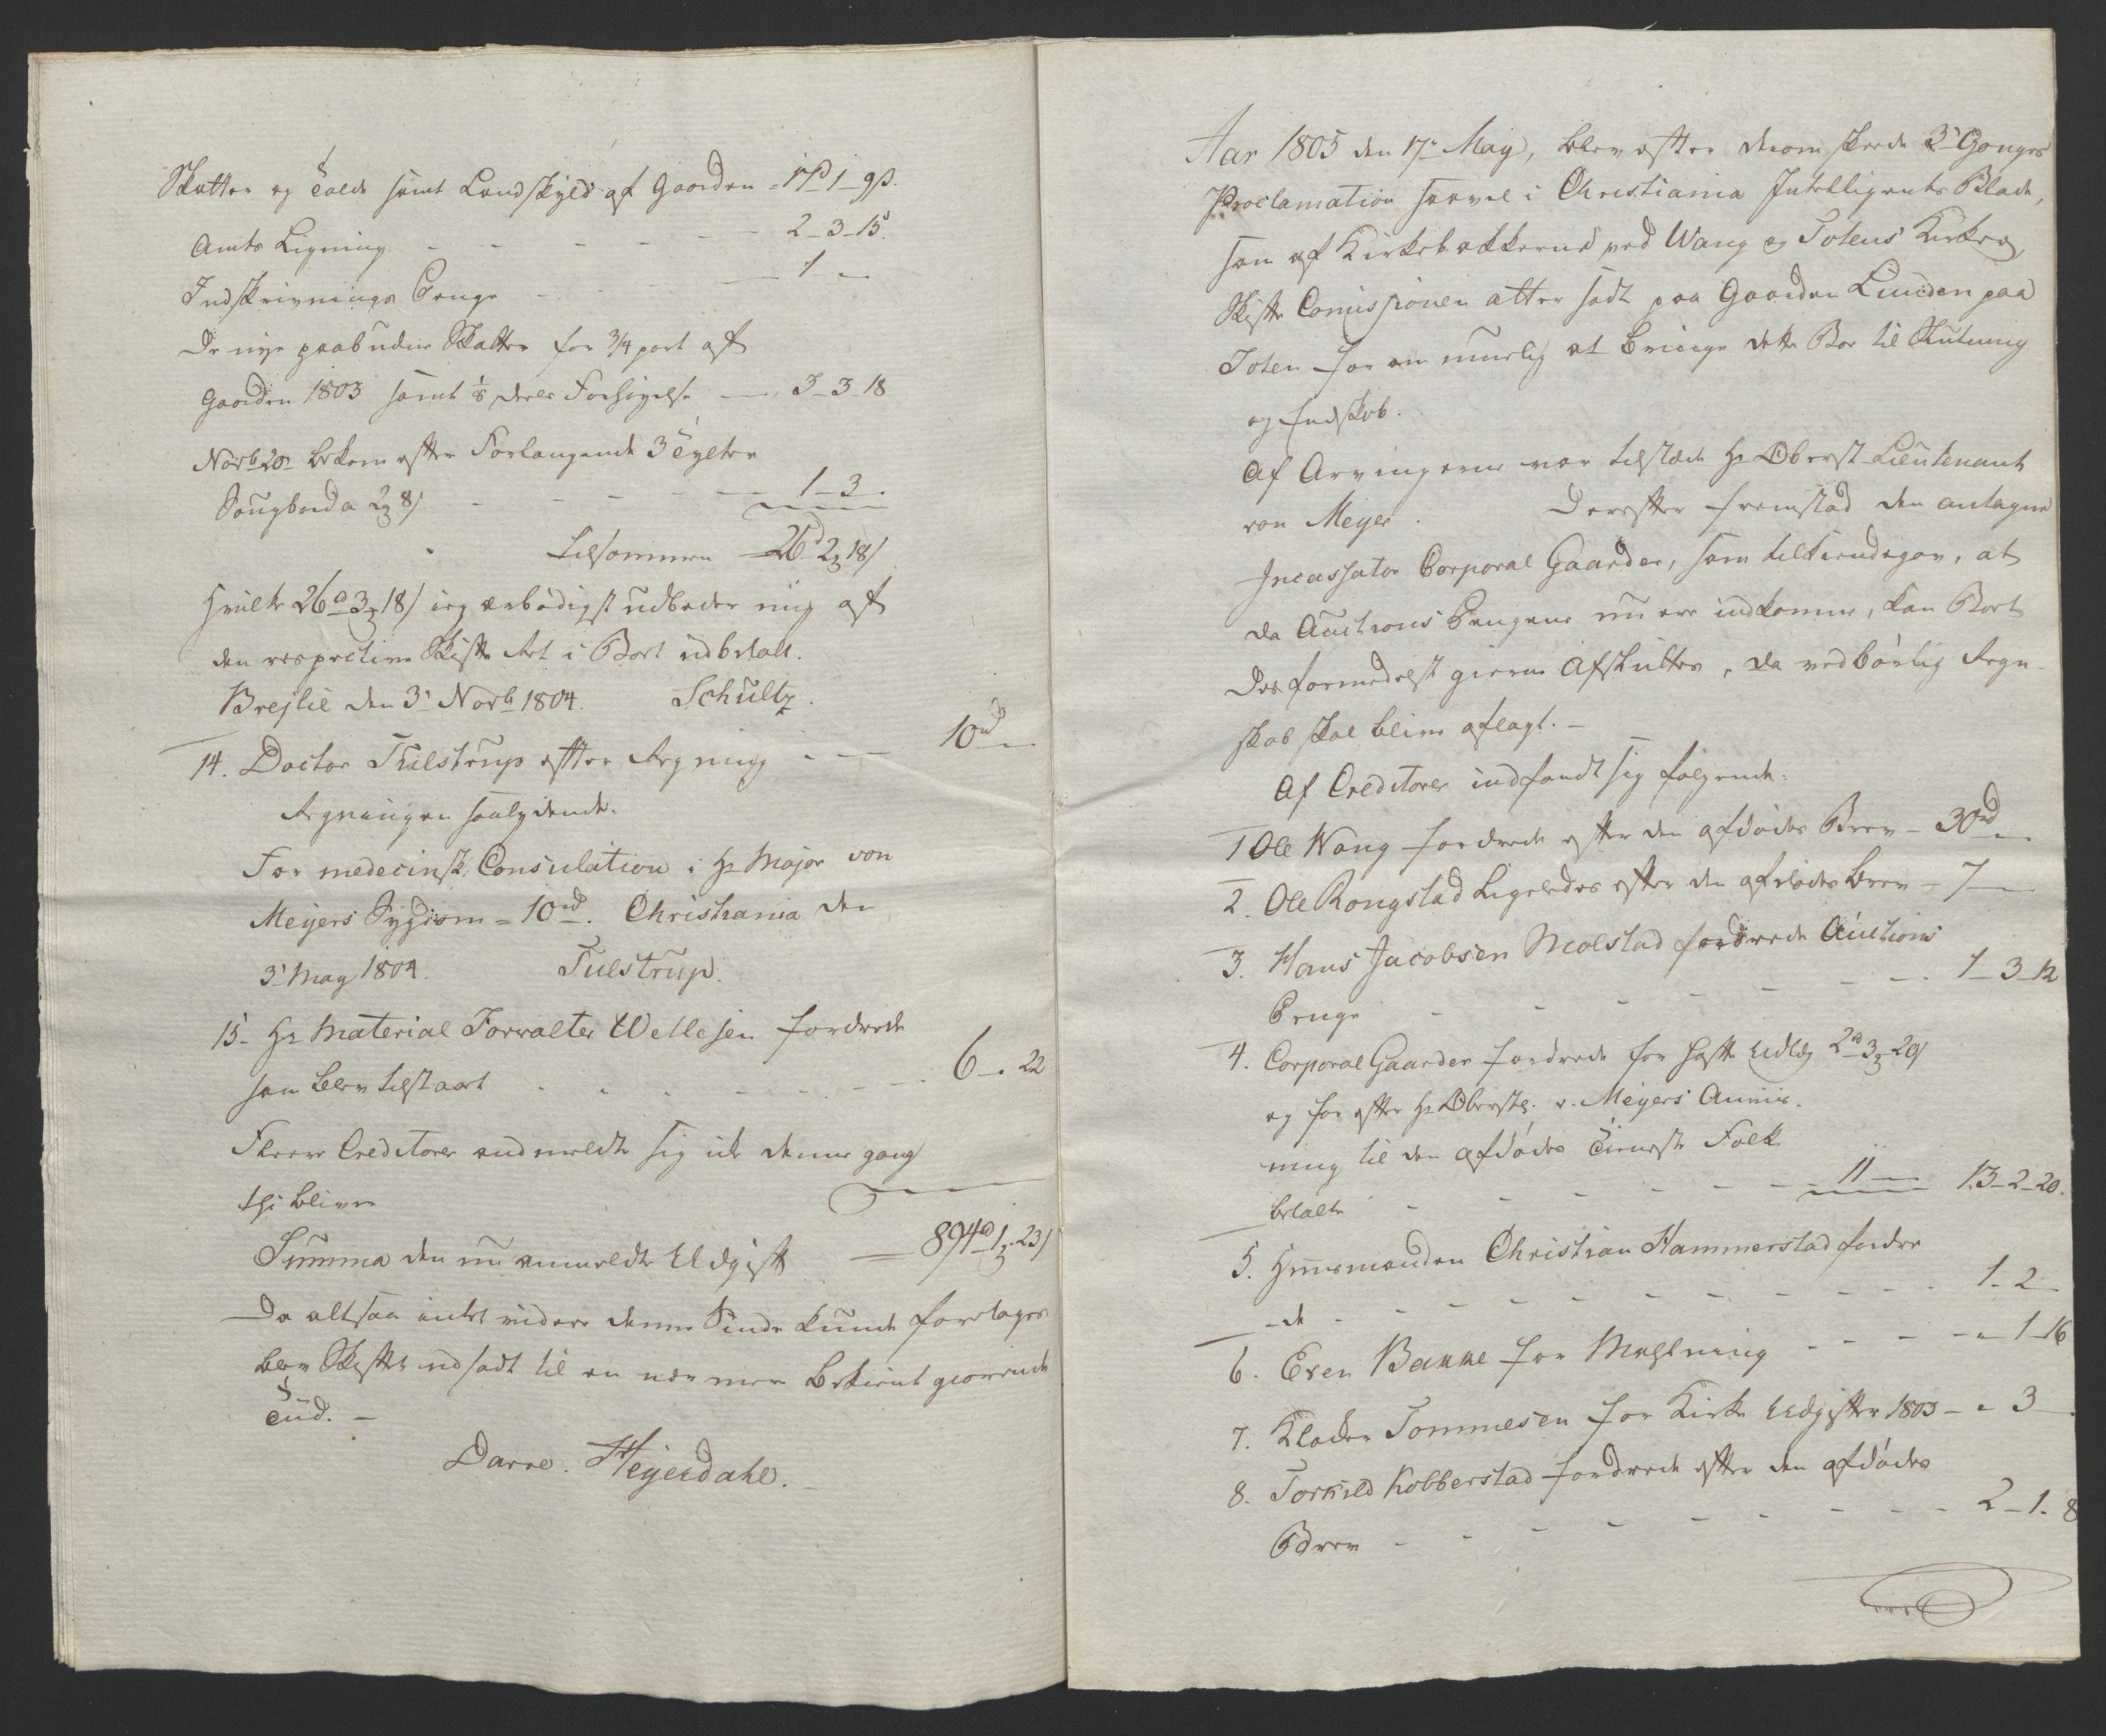 Skatter og Tolde samt Landskyld af Gaarden - 17d 1 - 9s.
Amts Ligning - - - - - 2 - 3 - 15.
Indskrivnings Penge - - - 1 -
De nye paabudne Skatter for 3/4 part af
Gaarden 1803 samt 1/8 deels Forhøyelse - 3 - 3 - 18
Novb 20de bekom efter Forlangende 3 Tylter
Saugbord a 2 8s - - - - - 1 - 3 -
tilsammen - 26d 2 18s
Hvilke 26d 3 18s ieg ærbødigst udbeder mig af
den respective Skifte Ret i Boet udbetalt.
Brejlie den 3' Novb 1804. Schultz.
14. Doctor Tulstrup efter Regning - - 10rd -
Regningen saalydende.
For medecinsk Consulation i Hr Major von
Meyers Sygdom = 10rd. Christiania den
3' May 1804. Tulstrup.
15. Hr Material Forvalter Wellesen fordrede
som blev tilstaaet - - - - - - 6 - . 22
Fleere Creditorer anmeldte sig ik denne gang
thi bliver
Summa den nu anmeldte Udgift - 894d 1 23s
Da altsaa intet videre denne Sinde kunde foretages
blev Skiftet udsadt til en nærmere bekient giørende
Tiid. -
Darre. Heyerdahl.
Aar 1805 den 17de May, blev efter derom skeede 3de Ganges
Proclamation saavel i Christiania Intelligents Blade,
som af Kirkebakkerne ved Wang og Totens Kirker,
Skifte Comissionen atter sadt paa Gaarden Lunden paa
Toten for om muelig at bringe dette Boe til Slutning
og Endskab.
Af Arvingerne var tilstæde Hr Oberst Lieutenant
von Meyer. Derefter fremstod den antagne
Incassator Corporal Gaarder, som tilkiendegav, at
da Auctions Pengene nu ere indkomne, kan Boet
desformedelst gierne Afsluttes, da vedbørlig Regn-
skab skal blive aflagt. -
Af Creditorer indfandt sig følgende:
1 Ole Wang fordrede efter den afdødes Brev - 30rd -
2. Ole Rongstad Ligeledes efter den afdødes brev - 7 -
3. Hans Jacobsen Molstad fordrede Auctions
Penge - - - - - - - 1 - 3 - 12
4. Corporal Gaarder fordrede for hafte Udlæg 2rd 3 20s
og for efter Hr Oberstl. v. Meyers Anviis-
ning til den afdødes Tieneste Folk
betalte - - - - - - 11 - 13 - 2 - 20.
5. Huusmanden Christian Hammerstad fordre
-de - - - - - - - - - 1. 2 -
6. Even Bakke for Meglning - - - - 1 - 16
7. Klokker Tommesen for Kirke Udgifter 1803 - - 3 -
8. Torkild Kobberstad fordrede efter den afdødes
Brev - - - - - - - - 2 - 1. 8